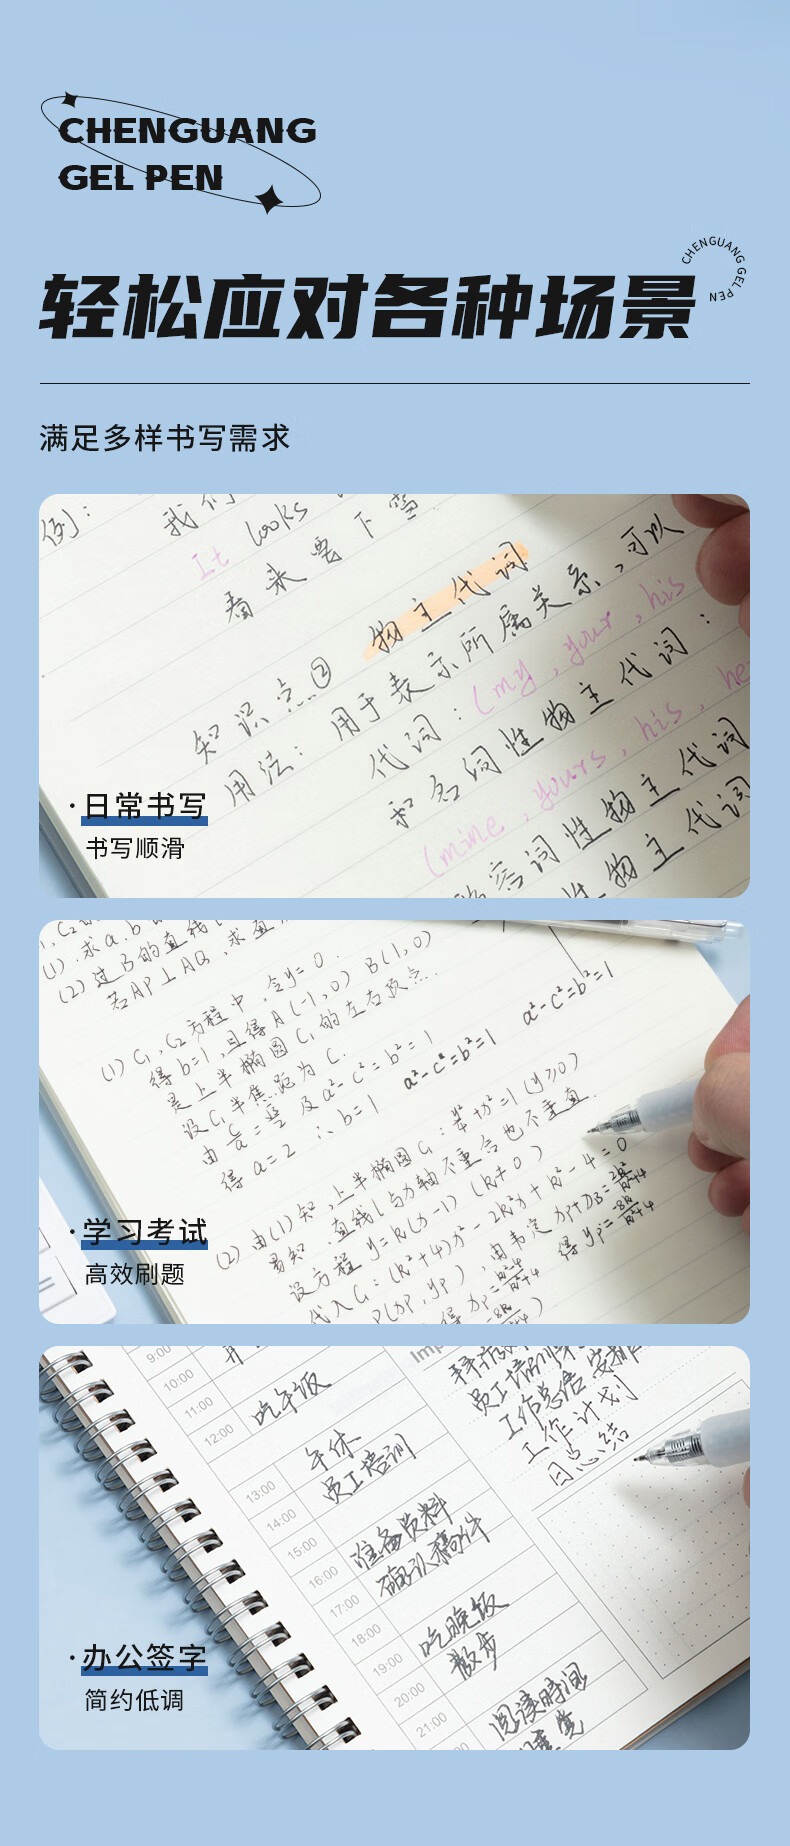 CHENGUANG
GEL PEN
轻松应对各种场景
CHENGUANG GEL PEN
满足多样书写需求
例： 我们
It looks
看来要下雪
知识点② 物主代词
用法：用于表示所属关系，可以
代词：(my, your, his
和名词性物主代词：
(mine, yours, his, he
容词性物主代词
性物主代词
·日常书写
书写顺滑
(1).求a.b
(2)过B的直线
若AP⊥AQ，求直
(1) C₁，C₂方程中，令y=0.
得b=1，且得A(-1,0) B(1,0)
是上半椭圆C₁的左右顶点.
设C₁半焦距为C.
由 及a²-c²=b²=1 a²-c²=b²=1 a²-c²=b²=1
得a=2 ∴b=1
(2)由(1)知，上半椭圆C₁： +x²=1(y≥0)
易知，直线l与x轴不重合也不垂直.
设方程y=k(x-1) (k≠0)
代入C₁：(k²+4)x²-2k²x+k²-4=0
P(xp,yp)，由韦定xp+xB=2k²/k²+4
得xp=k²-4/k²+4 得yp=-8k/k²+4
·学习考试
高效刷题
9:00
10:00
11:00
12:00 吃午饭
13:00 午休
14:00 员工培训
15:00
16:00 准备资料
17:00 确认稿件
18:00
19:00 吃晚饭
20:00 散步
21:00
阅读时间
Imp
员工培训
工作总结 安排
工作计划
日总结
·办公签字
简约低调